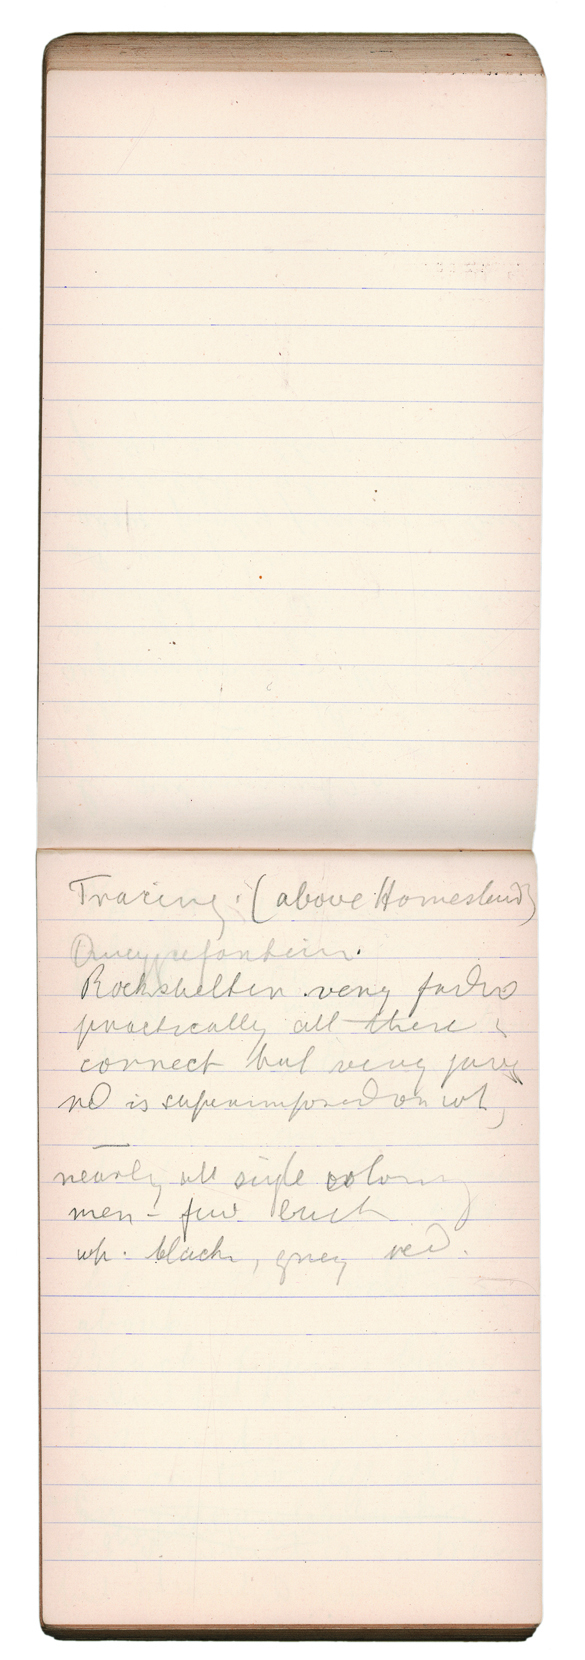 Tracing. (above Homestead)
Rockshelter very faded
practically all there
correct but very
red is superimposed on wh,
nearly all single colour
men - few buck
wh. black, grey red.